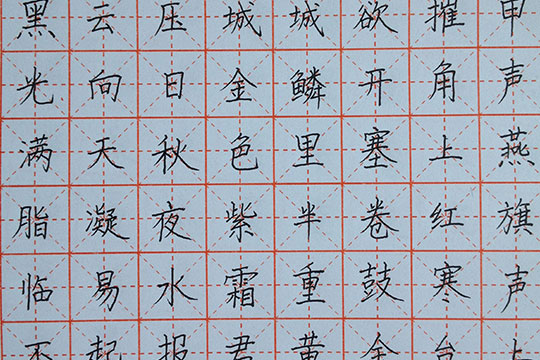 黑云压城城欲摧甲
光向日金鳞开角声
满天秋色里塞上燕
脂凝夜紫半卷红旗
临易水霜重鼓寒声
不起报君黄金台上